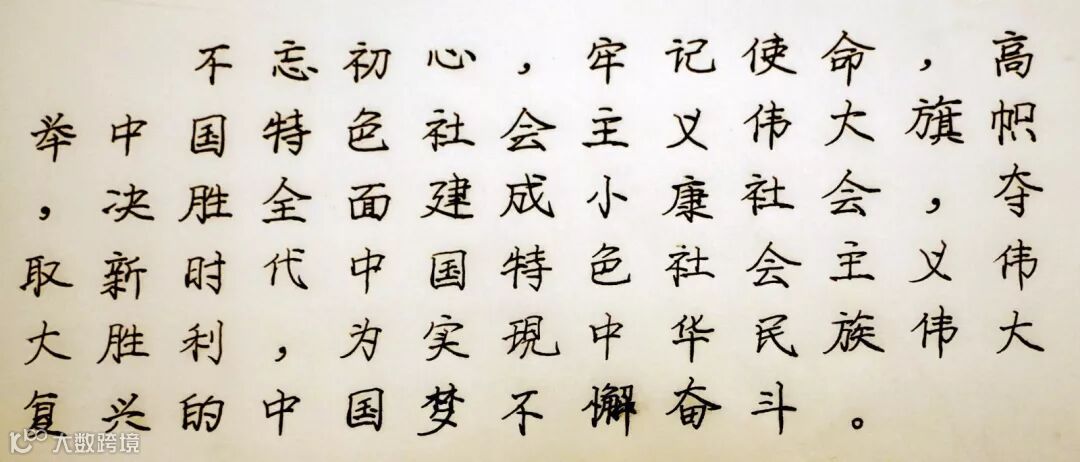 不忘初心,牢记使命,高
举中国特色社会主义伟大旗帜
,决胜全面建成小康社大会,夺
取新时代中国特色社会主义伟
大胜利,为实現中华民族伟大
复兴的中国梦不懈奋斗。
大数跨境